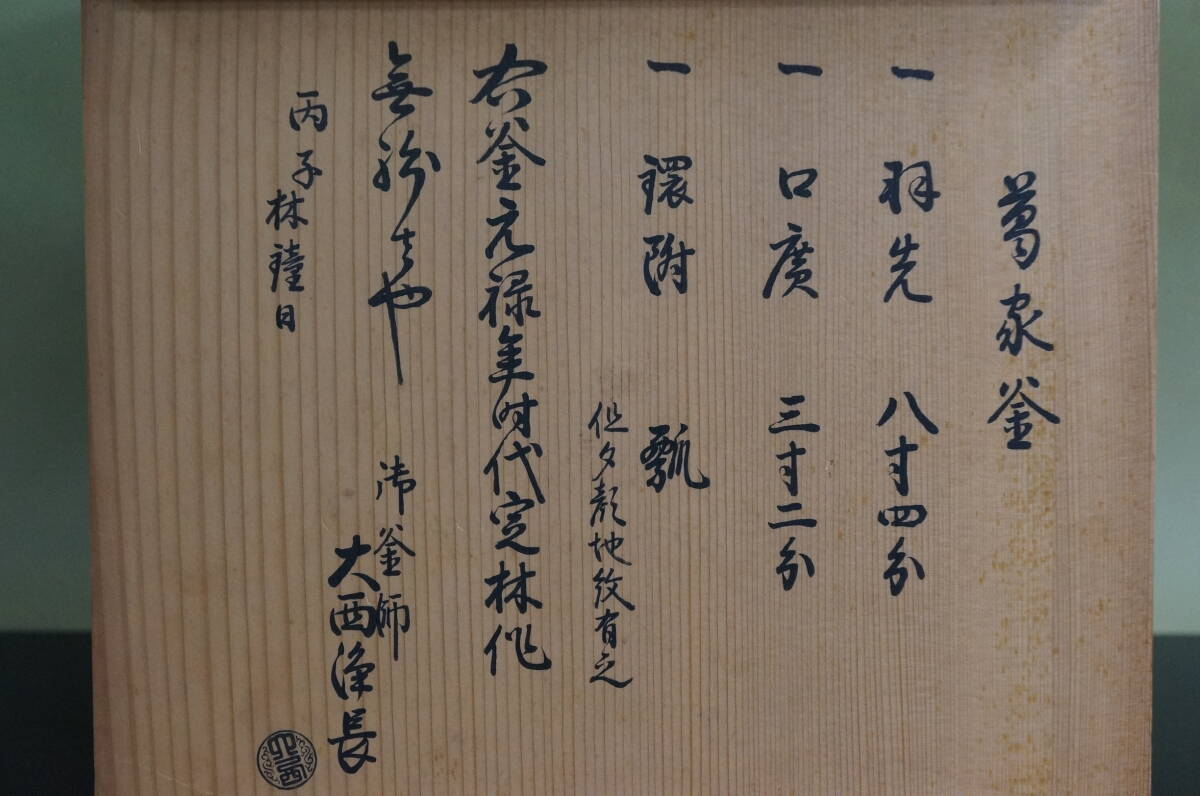 葛家釜
一 羽先 八寸四分
一 口廣 三寸二分
一 環附 瓢
但夕顔地紋有之
右釜元禄年時代定林作
無紛もや
御釜師
大西浄長
丙子林鐘日
大西